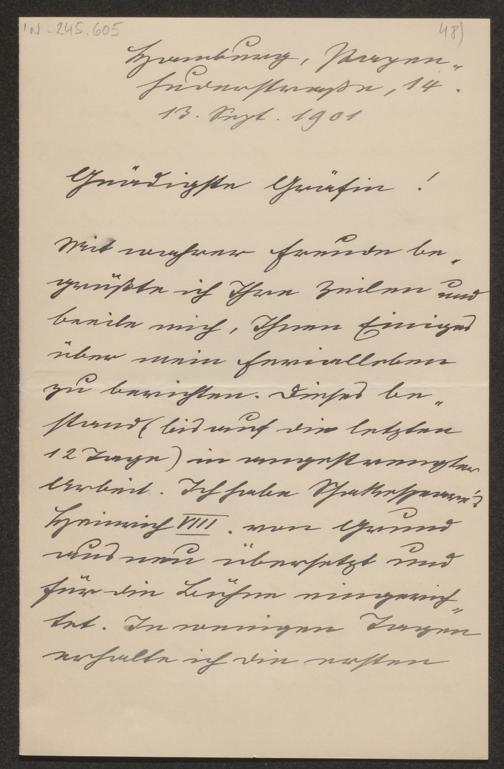 IN-245.605
48)
Hamburg, Pagen-
fuderstraße, 14.
13. Sept. 1901
Gnädigste Gräfin!
Mit wahrer Freude be-
grüßte ich Ihre Zeilen und
beeile mich, Ihnen Einiges
über mein Ferialleben
zu berichten. Dieses be-
stand (bis auf die letzten
12 Tage) in angestrengter
Arbeit. Ich habe Shakespeare's
Heinrich VIII. von Grund
aus neu übersetzt und
für die Bühne eingerich-
tet. In wenigen Tagen
erhalte ich die ersten